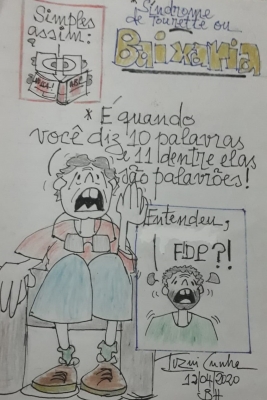 Simples
assim:
* Síndrome
de Tourette ou
Baixaria
* É quando
você diz 10 palavras
e 11 dentre elas
são palavrões!
Entendeu,
FDP?!
12/04/2020
BH